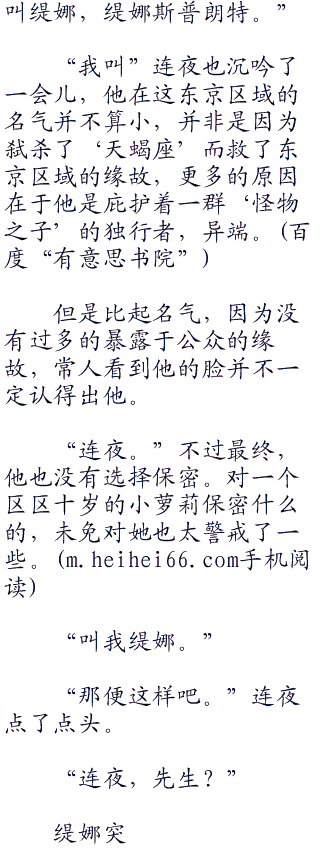 叫缇娜，缇娜斯普朗特。”
“我叫”连夜也沉吟了
一会儿，他在这东京区域的
名气并不算小，并非是因为
弑杀了‘天蝎座’而救了东
京区域的缘故，更多的原因
在于他是庇护着一群‘怪物
之子’的独行者，异端。(百
度“有意思书院”)
但是比起名气，因为没
有过多的暴露于公众的缘
故，常人看到他的脸并不一
定认得出他。
“连夜。”不过最终，
他也没有选择保密。对一个
区区十岁的小萝莉保密什么
的，未免对她也太警戒了一
些。(m.heihei66.com手机阅
读)
“叫我缇娜。”
“那便这样吧。”连夜
点了点头。
“连夜，先生？”
缇娜突